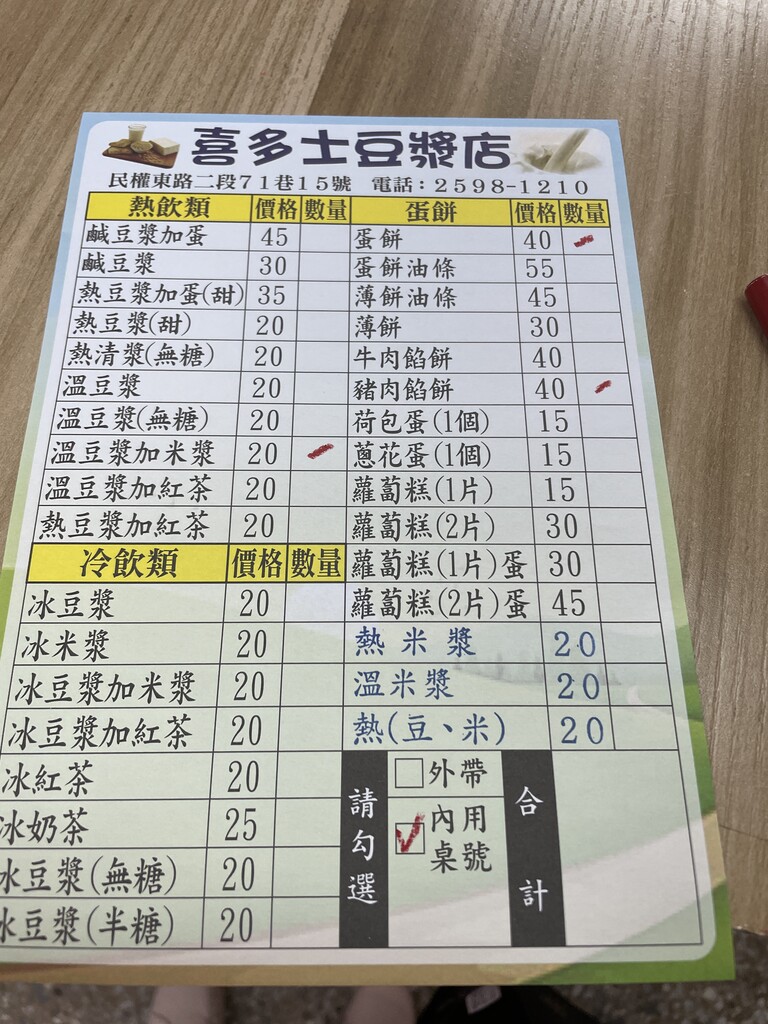 喜多士豆漿店
民權東路二段71巷15號 電話:2598-1210
熱飲類 價格 數量
鹹豆漿加蛋 45
鹹豆漿 30
熱豆漿加蛋(甜) 35
熱豆漿(甜) 20
熱清漿(無糖) 20
溫豆漿 20
溫豆漿(無糖) 20
溫豆漿加米漿 20
溫豆漿加紅茶 20
熱豆漿加紅茶 20
冷飲類 價格 數量
冰豆漿 20
冰米漿 20
冰豆漿加米漿 20
冰豆漿加紅茶 20
冰紅茶 20
冰奶茶 25
冰豆漿(無糖) 20
冰豆漿(半糖) 20
蛋餅 價格 數量
蛋餅 40
蛋餅油條 55
薄餅油條 45
薄餅 30
牛肉餡餅 40
豬肉餡餅 40
荷包蛋(1個) 15
蔥花蛋(1個) 15
蘿蔔糕(1片) 15
蘿蔔糕(2片) 30
蘿蔔糕(1片)蛋 30
蘿蔔糕(2片)蛋 45
熱米漿 20
溫米漿 20
熱(豆、米) 20
請勾選
外帶
內用
桌號
合計